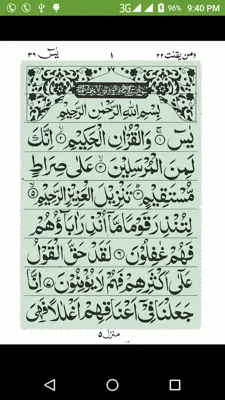 3G 96% 9:40 PM
يٰسٓ ٣٦ ١ ومن يقنت ٢٢
بِسْمِ اللّٰهِ الرَّحْمٰنِ الرَّحِيْمِ
يٰسٓ ۚ﴿١﴾ وَالْقُرْاٰنِ الْحَكِيْمِ ۙ﴿٢﴾ اِنَّكَ
لَمِنَ الْمُرْسَلِيْنَ ۙ﴿٣﴾ عَلٰى صِرَاطٍ
مُّسْتَقِيْمٍ ؕ﴿٤﴾ تَنْزِيْلَ الْعَزِيْزِ الرَّحِيْمِ ۙ﴿٥﴾
لِتُنْذِرَ قَوْمًا مَّاۤ اُنْذِرَ اٰبَآؤُهُمْ
فَهُمْ غٰفِلُوْنَ ﴿٦﴾ لَقَدْ حَقَّ الْقَوْلُ
عَلٰۤى اَكْثَرِهِمْ فَهُمْ لَا يُؤْمِنُوْنَ ﴿٧﴾ اِنَّا
جَعَلْنَا فِيْۤ اَعْنَاقِهِمْ اَغْلٰلًا فَهِيَ
منزل ٥